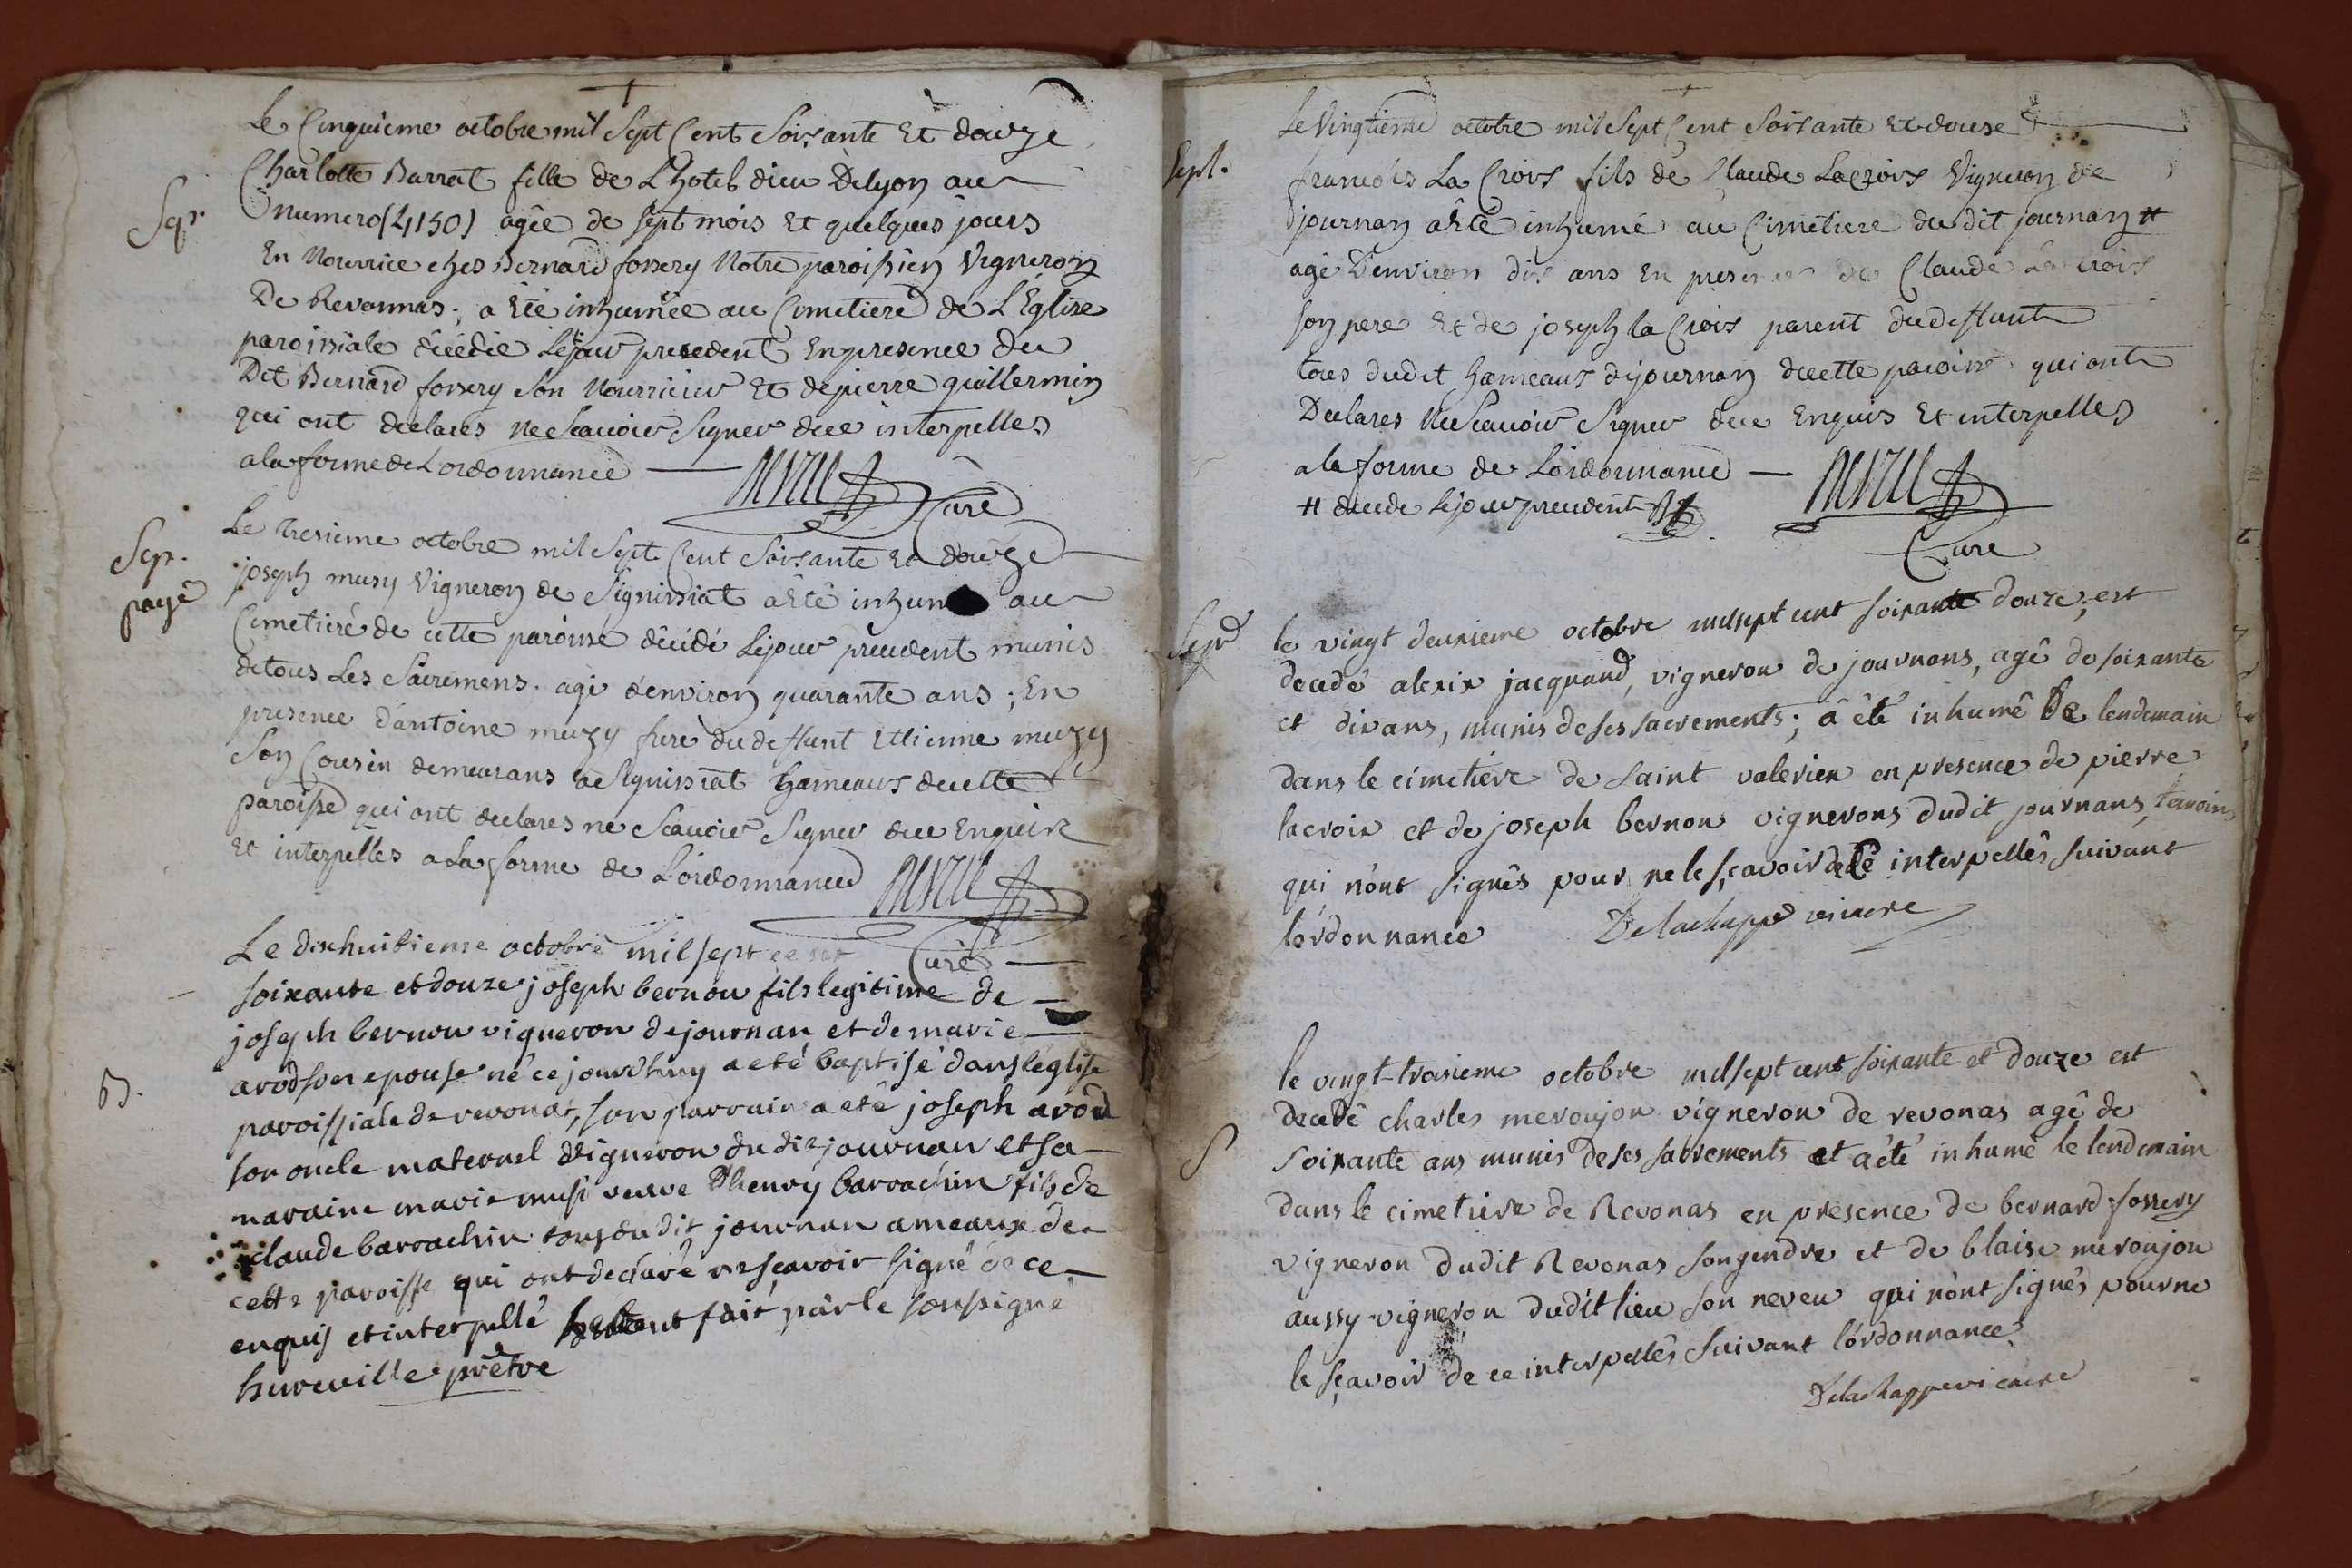 Le Cinquieme octobre mil Sept Cent Soixante Et douze
Charlotte Barrat fille de L'hotel dieu De lyon au
Sepr.
numero (4150) agée de sept mois Et quelques jours
En Nourrice ches Bernard fossery Notre paroissien Vigneron
De Revonnas; a Eté inhumée au Cimetiere de L'Eglise
paroissiale décédée Le jour precedent En presence du
Dit Bernard fossery Son Nourricier Et de pierre guillermin
qui ont declarés ne Scavoir Signer de ce interpelles
a la forme de Lordonnance
Curé
Le Tresieme octobre mil Sept Cent Soixante Et douze
Sep.
payé
joseph musy Vigneron de Signissiat a Eté inhumé au
Cimetiere de cette paroisse décédé Le jour precedent munis
de tous Les Sacremens. agé d'environ quarante ans; En
presence d'antoine muzy frere du deffunt Etienne muzy
Son Cousin demeurans a Signissiat hameaux de cette
paroisse qui ont declares ne Scavoir Signer de ce Enquis
Et interpelles a La forme de L'ordonnance
Curé
Le dixhuitieme octobre mil sept cent
soixante et douze joseph bernou fils legitime de
joseph bernou vigneron de journan et de marie
B.
arod son epouse né ce jourdhuy a eté baptisé dans leglise
paroissiale de revonas, son parrain a eté joseph arod
son oncle maternel vigneron du dit journan et sa
maraine marie musi veuve d'henry barrachin fils de
claude barrachin tous du dit journan ameaux de
cette paroisse qui ont declaré ne scavoir signé de ce
enquis et interpellé fait par le soussigné
hureville prêtre
Le Vingtieme octobre mil Sept Cent Soixante Et douse
Sept.
francois La Croix fils de Claude Lacroix Vigneron de
journan a Eté inhumé au Cimetiere du dit journan #
agé D'environ dix ans En presence de Claude La croix
son pere Et de joseph la Croix parent du deffunt
tous dudit hameaux de journan de cette paroisse qui ont
Declares Ne Scavoir Signer de ce Enquis Et interpelles
a la forme de L'ordonnance
# decede le jour precedent
Curé
Sepr
le vingt deuxieme octobre mil sept cent soixante douze, est
decedé alexix jacquand, vigneron de journans, agé de soixante
et dix ans, munis de ses sacrements; a été inhumé le lendemain
dans le cimetiere de saint valerien en presence de pierre
lacroix et de joseph bernon vignerons dudit journans, temoins
qui n'ont signés pour ne le sçavoir de ce interpellés suivant
l'ordonnance Delachappe vicaire
le vingt-troisieme octobre mil sept cent soixante et douze est
decedé charles meroujon vigneron de revonas agé de
S
soixante ans munis de ses sacrements et a été inhumé le lendemain
dans le cimetiere de Revonas en presence de bernard fossery
vigneron dudit Revonas son gendre et de blaise meroujon
aussy vigneron dudit lieu son neveu qui n'ont signés pour ne
le sçavoir de ce interpellés suivant l'ordonnance
Delachappe vicaire